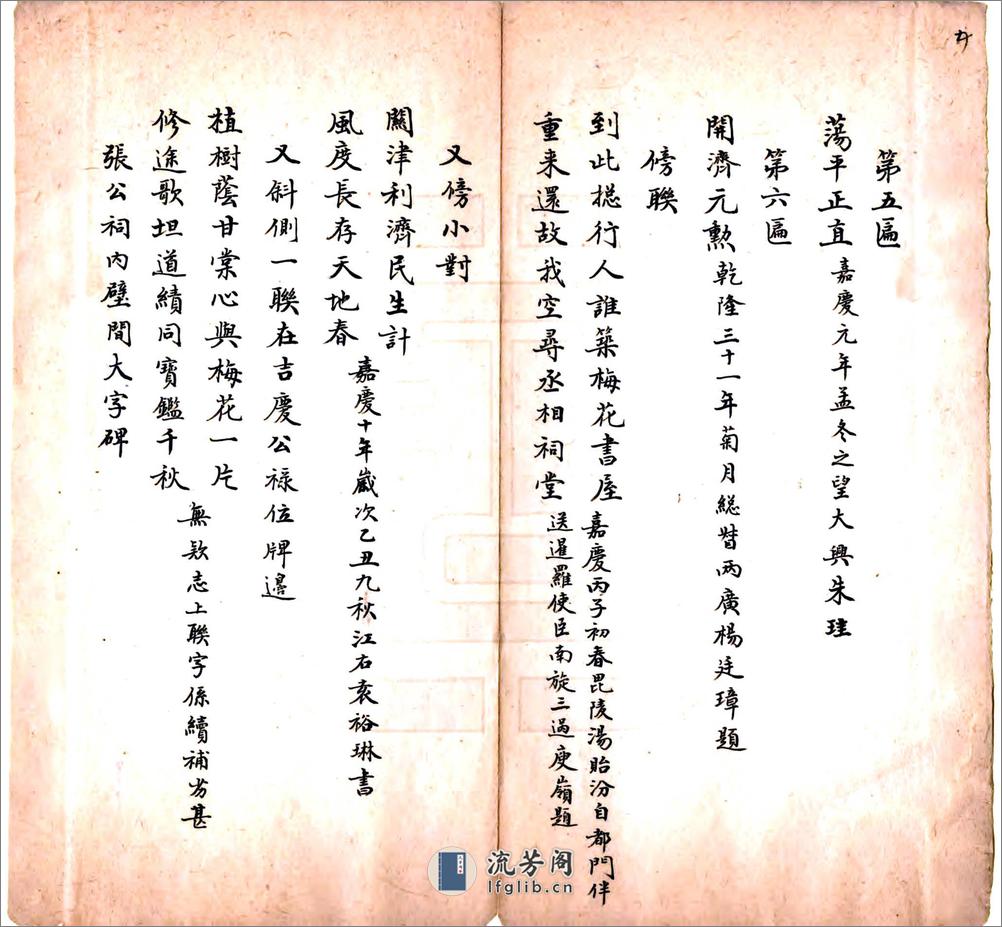 第五匾
蕩平正直嘉慶元年孟冬之望大興朱珪
第六匾
開濟元勲乾隆三十一年菊月総督兩廣楊廷璋題
傍聯
到此摠行人誰築梅花書屋嘉慶丙子初春毘陵湯貽汾自都門伴
重来還故我空尋丞相祠堂送暹羅使臣南旋三過庾嶺題
又傍小對
關津利濟民生計
風度長存天地春嘉慶十年嵗次乙丑九秋江右袁裕琳書
又斜側一聯在吉慶公祿位牌邉
植樹蔭甘棠心與梅花一片
修途歌坦道績同寶鑑千秋
無欵志上聯字係續補劣甚
張公祠內壁間大字碑
流芳阁
lfglib.cn